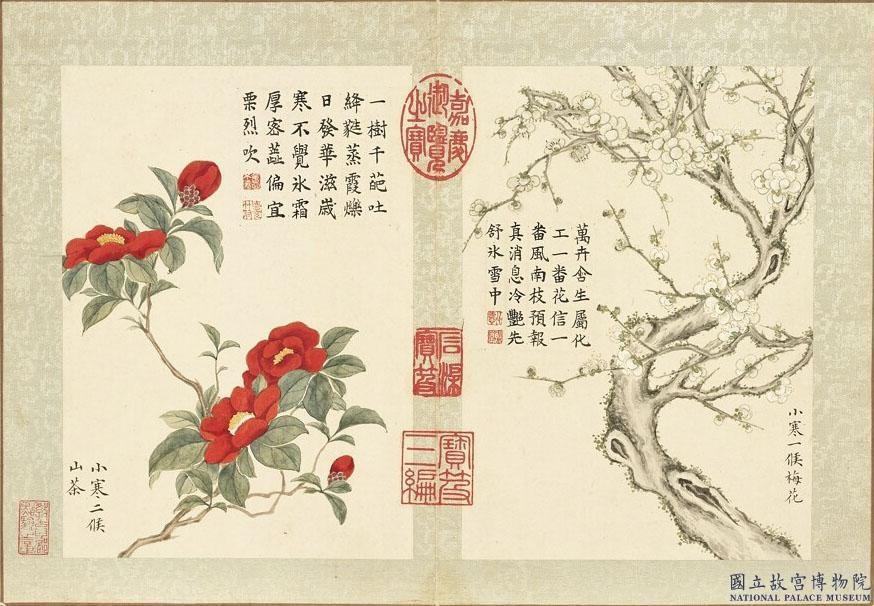 小寒一候梅花
萬卉含生屬化
工一番花信一
番風南枝預報
真消息冷艷先
舒氷雪中
嘉慶
御覽
之寶
石渠
寶笈
寶笈
三編
一樹千葩吐
絳蕤蒸霞爍
日發華滋嵗
寒不覺氷霜
厚宻蕋偏宜
栗烈吹
小寒二候
山茶
國立故宮博物院
NATIONAL PALACE MUSEUM